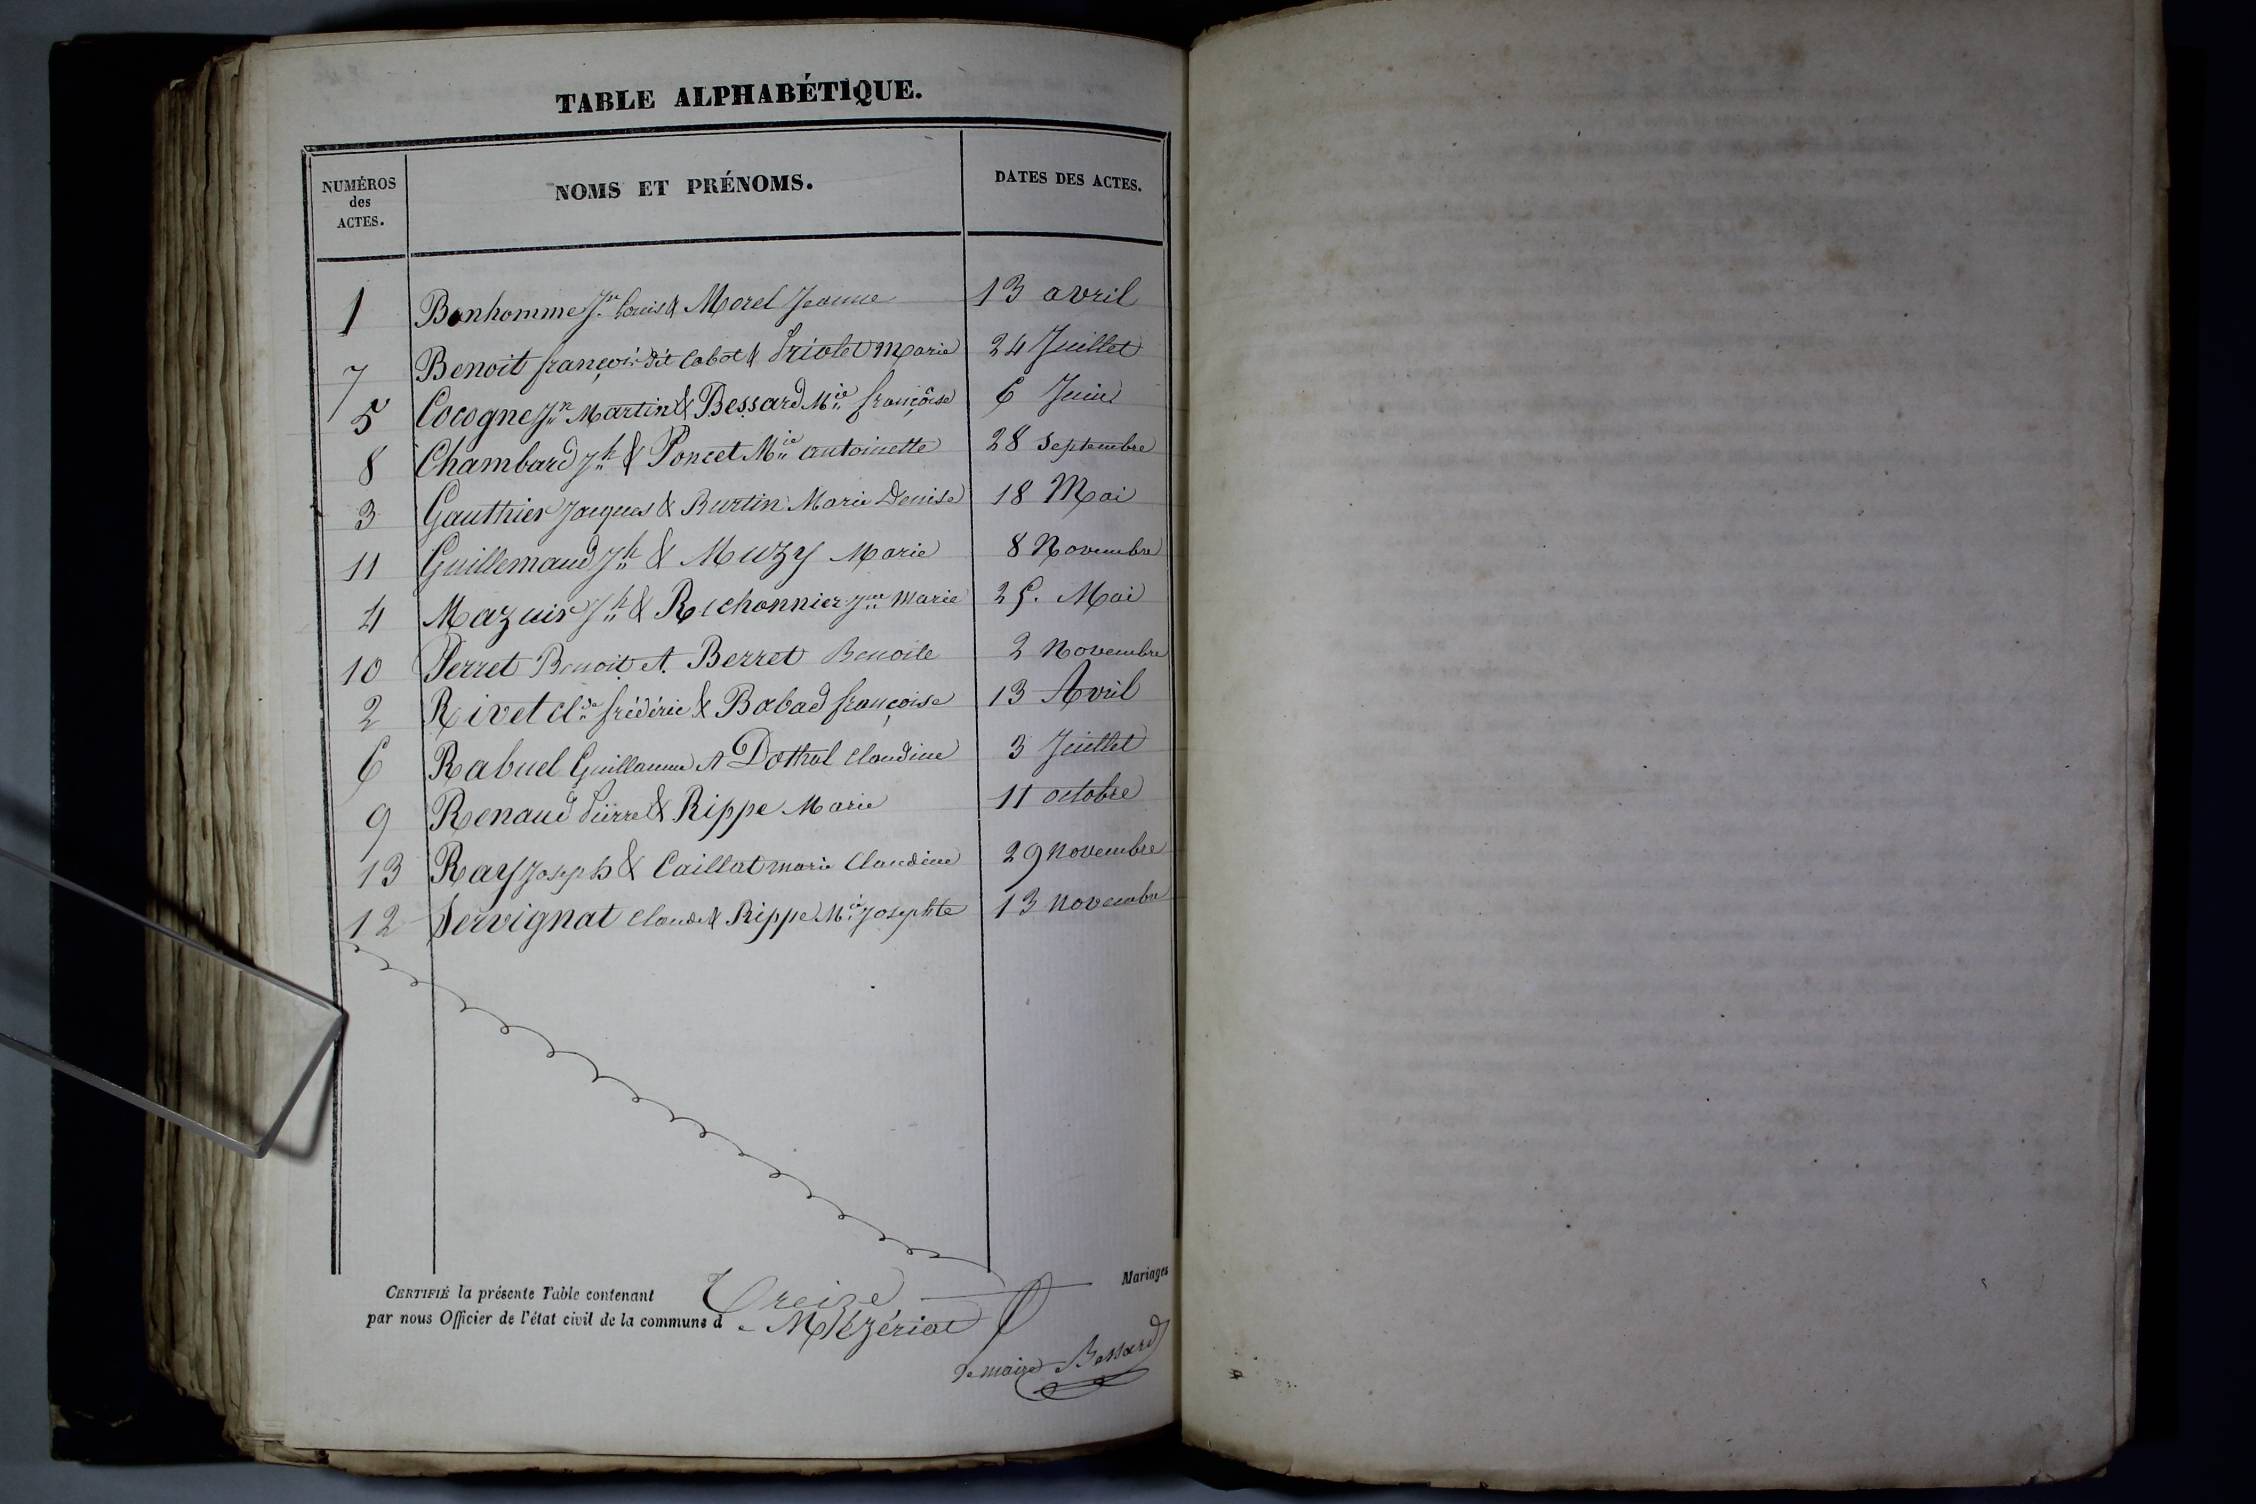 TABLE ALPHABÉTIQUE.
NUMÉROS des ACTES. NOMS ET PRÉNOMS. DATES DES ACTES.
1 Bonhomme Jn Louis & Morel Jeanne 13 avril
7 Benoit françois dit Cabot & Triolet Marie 24 Juillet
5 Cocogne Jn Martin & Bessard Mie françoise 6 Juin
8 Chambard Jh & Poncet Mie antoinette 28 Septembre
3 Gauthier Jacques & Burtin Marie Denise 18 Mai
11 Guillemaud Jh & Muzy Marie 8 Novembre
4 Mazuir Jh & Richonnier Jne Marie 25. Mai
10 Perret Benoit et Berret Benoite 2 Novembre
2 Rivet Cde frédéric & Babad françoise 13 Avril
6 Rabuel Guillaume et Dothal Claudine 3 Juillet
9 Renaud Pierre & Rippe Marie 11 octobre
13 Ray Joseph & Caillat marie Claudine 29 Novembre
12 Servignat Claude & Rippe Mie Josephte 13 Novembre
CERTIFIÉ la présente Table contenant Treize Mariages
par nous Officier de l'état civil de la commune de Mézériat
Le maire Bessard